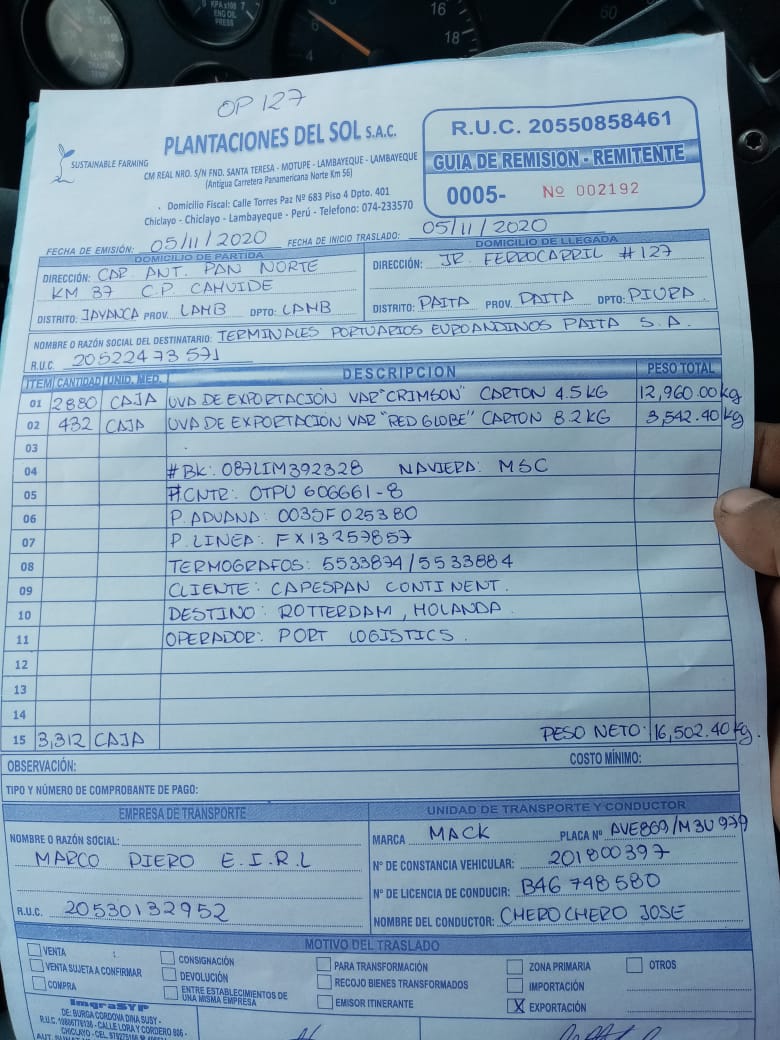 OP 127
SUSTAINABLE FARMING
PLANTACIONES DEL SOL S.A.C.
CM REAL NRO. S/N FND. SANTA TERESA - MOTUPE - LAMBAYEQUE - LAMBAYEQUE
(Antigua Carretera Panamericana Norte Km 56)
Domicilio Fiscal: Calle Torres Paz Nº 683 Piso 4 Dpto. 401
Chiclayo - Chiclayo - Lambayeque - Perú - Telefono: 074-233570
R.U.C. 20550858461
GUIA DE REMISION - REMITENTE
0005- Nº 002192
FECHA DE EMISIÓN: 05/11/2020 FECHA DE INICIO TRASLADO: 05/11/2020
DOMICILIO DE PARTIDA
DIRECCIÓN: CAR. ANT. PAN NORTE
KM 37 C.P. CAHUIDE
DISTRITO: JAYANCA PROV. LAMB DPTO: LAMB
DOMICILIO DE LLEGADA
DIRECCIÓN: JR. FERROCARRIL #127
DISTRITO: PAITA PROV. PAITA DPTO: PIURA
NOMBRE O RAZÓN SOCIAL DEL DESTINATARIO: TERMINALES PORTUARIOS EUROANDINOS PAITA S.A.
R.U.C. 20522473571
ITEM CANTIDAD UNID. MED. DESCRIPCION PESO TOTAL
01 2880 CAJA UVA DE EXPORTACIÓN VAR "CRIMSON" CARTON 4.5 KG 12,960.00 kg
02 432 CAJA UVA DE EXPORTACIÓN VAR "RED GLOBE" CARTON 8.2 KG 3,542.40 kg
03
04 #BK: 087LIM392328 NAVIERA: MSC
05 #CNTR: OTPU 606661-8
06 P. ADUANA: 0035F025380
07 P. LINEA: FX13257857
08 TERMOGRAFOS: 5533874/5533884
09 CLIENTE: CAPESPAN CONTINENT.
10 DESTINO: ROTTERDAM, HOLANDA.
11 OPERADOR: PORT LOGISTICS.
12
13
14
15 3,312 CAJA PESO NETO: 16,502.40 kg.
OBSERVACIÓN: COSTO MÍNIMO:
TIPO Y NÚMERO DE COMPROBANTE DE PAGO:
EMPRESA DE TRANSPORTE
NOMBRE O RAZÓN SOCIAL:
MARCO PIERO E.I.R.L
R.U.C. 20530132952
UNIDAD DE TRANSPORTE Y CONDUCTOR
MARCA MACK PLACA Nº AVE869/M3U979
Nº DE CONSTANCIA VEHICULAR: 201800397
Nº DE LICENCIA DE CONDUCIR: B46748580
NOMBRE DEL CONDUCTOR: CHERO CHERO JOSE
MOTIVO DEL TRASLADO
VENTA
VENTA SUJETA A CONFIRMAR
COMPRA
CONSIGNACIÓN
DEVOLUCIÓN
ENTRE ESTABLECIMIENTOS DE
UNA MISMA EMPRESA
PARA TRANSFORMACIÓN
RECOJO BIENES TRANSFORMADOS
EMISOR ITINERANTE
ZONA PRIMARIA
IMPORTACIÓN
X EXPORTACIÓN
OTROS
ImgraSYP
DE: BURGA CORDOVA DINA SUSY -
CALLE LORA Y CORDERO 806 -